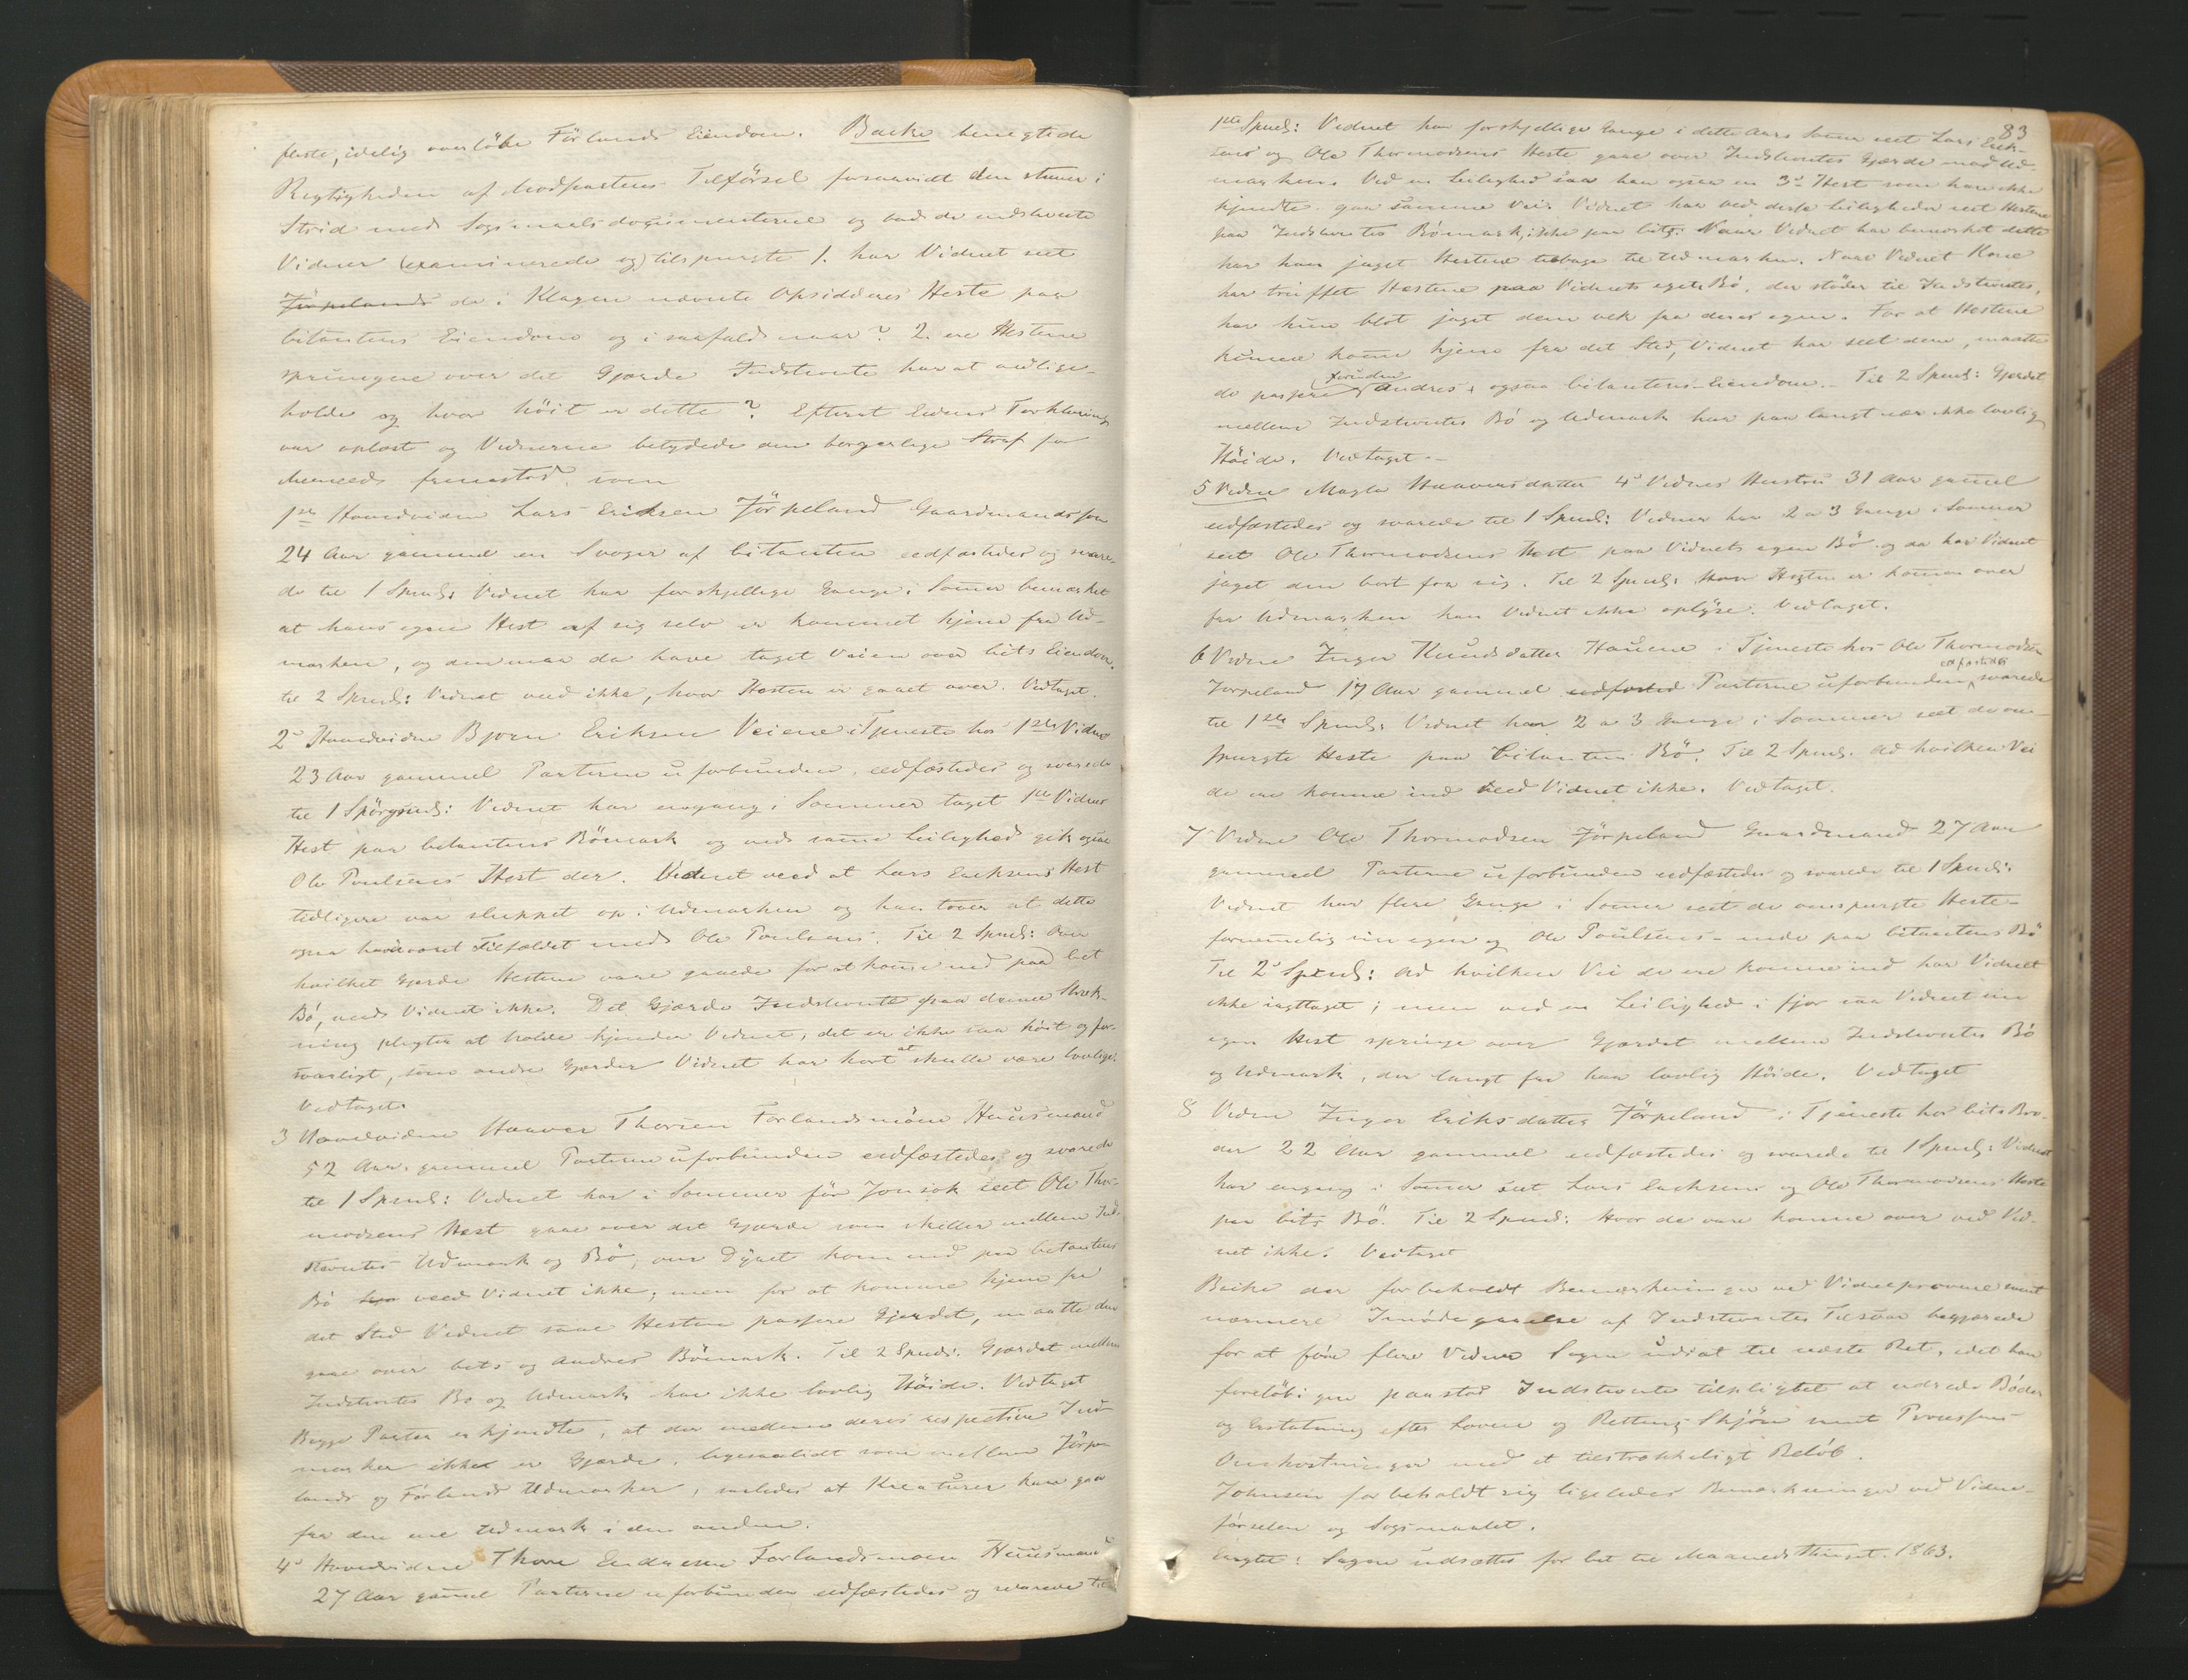 fleste, idelig overløbe Förlands Eiendom. Backe benegtede
Rigtigheden af Modpartens Tilførsel forsaavidt den staaer i
Strid med Sogsmaalsdocumenterne og bad de indstevnte
Vidner (examinerede og) tilspurgte 1. har Vidnet seet
Jörpelands de i Klagen nævnte Opsidderes Heste paa
Citantens Eiendom og i saafald naar? 2. ere Hestene
sprungne over det Gjærde Indstevnte har at vedlige-
holde og hvor høit er dette? Efterat Eedens Forklaring
var oplæst og Vidnerne betydede den borgerlige Straf for
Meeneed fremstod som
1ste Hovedvidne Lars Eriksen Jörpeland Gaardmandssøn
24 Aar gammel en Svoger af Citanten eedfæstedes og svare-
de til 1 Spml: Vidnet har forskjellige Gange i Sommer bemærket
at hans egen Hest af sig selv er kommet hjem fra Ud-
marken, og den maa da have taget Veien over Cits Eiendom.
til 2 Spml: Vidnet veed ikke, hvor Hesten er gaaet over. Vedtaget.
2det Hovedvidne Bjørn Eriksen Veiene i Tjeneste hos 1ste Vidne
23 Aar gammel Parterne uforbunden, eedfæstedes og svarede
til 1 Spörgsml: Vidnet har engang i Sommer taget 1ste Vidnes
Hest paa Citantens Bömark og ved samme Leilighed gik ogsaa
Ole Poulsens Hest der. Vidnet veed at Lars Eriksens Hest
tidligere var sluppet op i Udmarken og han troer at dette
ogsaa havde været Tilfældet med Ole Poulsens. Til 2 Spml: Over
hvilket Gjærde Hestene vare gaaede for at komme ned paa Cit
Bö, veed Vidnet ikke. Det Gjærde Indstevnte paa denne Stræk-
ning pligter at holde kjender Vidnet, det er ikke saa höit og for-
svarligt, som andre Gjærder Vidnet har hørt at skulle være lovlige.
Vedtaget.
3 Hovedvidne Haaver Thorsen Forlandsmoen Huusmand
52 Aar gammel Parterne uforbunden eedfæstedes og svarede
til 1 Spml: Vidnet har i Sommer før Jonsok seet Ole Thor-
modsens Hest gaae over det Gjærde som skiller mellem Ind-
stevntes Udmark og Bö, om Dyret kom ned paa Citantens
Bö veed Vidnet ikke; men for at komme hjem fra
det Sted Vidnet saae Hesten passere Gjerdet, maatte den
gaae over Cits og Andres Bömark. Til 2 Spml: Gjærdet mellem
Indstevntes Bö og Udmark har ikke lovlig Høide. Vedtaget
Begge Parter erkjendte, at der mellem deres respective Ind-
marker ikke er Gjærde, ligesaalidt som mellem Jörpe-
lands og Förlands Udmarker, saaledes at Kreaturer kan gaa
fra den ene Udmark i den anden.
4de Hovedvidne Thore Endresen Forlandsmoen Huusmand
27 Aar gammel Parterne uforbunden eedfæstedes og svarede til
83
1ste Spml: Vidnet har forskjellige Gange i dette Aars Sommer seet Lars Erik-
sens og Ole Thormodsens Heste gaae over Indstevntes Gjærde mod Ud-
marken. Ved en Leilighed saa han ogsaa en 3de Hest som han ikke
kjendte gaa samme Vei. Vidnet har ved disse Leiligheder seet Hestene
paa Indstevntes Bömark, ikke paa Cits. Naar Vidnet har bemærket dette
har han jaget Hestene tilbage til Udmarken. Naar Vidnets Kone
har truffet Hestene paa Vidnets eget Bö, der støder til Indstevntes,
har hun blot jaget dem vek fra deres egen. For at Hestene
kunne komme hjem fra det Sted, Vidnet har seet dem, maatte
de passere foruden Andres, ogsaa Citantens Eiendom. Til 2 Spml: Gjerdet
mellem Indstevntes Bö og Udmark har paa langt nær ikke lovlig
Høide. Vedtaget.
5 Vidne Magla Haaversdatter 4de Vidnes Hustru 31 Aar gammel
eedfæstedes og svarede til 1 Spml: Vidnet har 2 a 3 Gange i Sommer
seet Ole Thormodsens Hest paa Vidnets egen Bö og da har Vidnet
jaget den bort fra sig. Til 2 Spml: Hvor Hesten er kommen over
fra Udmarken kan Vidnet ikke oplyse. Vedtaget.
6 Vidne Inger Knudsdatter Hauene i Tjeneste hos Ole Thormodsen
Jorpeland 17 Aar gammel eedfæsted Parterne uforbunden, eedfæstedes svarede
til 1ste Spml: Vidnet har 2 a 3 Gange i Sommer seet de om-
spurgte Heste paa Citantens Bö. Til 2 Spml. ad hvilken Vei
de ere komne ind veed Vidnet ikke. Vedtaget.
7 Vidne Ole Thormodsen Jörpeland Gaardmand 27 Aar
gammel Parterne uforbunden eedfæstedes og svarede til 1 Spml:
Vidnet har flere Gange i Sommer seet de omspurgte Heste -
fornemelig sin egen og Ole Poulsens - nede paa Citantens Bö
Til 2de Spml: Ad hvilken Vei de ere komne ind har Vidnet
ikke iagttaget; men ved en Leilighed i fjor saa Vidnet sin
egen Hest springe over Gjærdet mellem Indstevntes Bö
og Udmark, der langt fra har lovlig Høide. Vedtaget
8 Vidne Inger Eriksdatter Jörpeland i Tjeneste hos Cits Bro-
der 22 Aar gammel eedfæstedes og svarede til 1 Spml: Vidnet
har engang i Sommer seet Lars Eriksens og Ole Thormodsens Heste
paa Cits Bö. Til 2 Spml: Hvor de vare komne over ved Vid-
net ikke. Vedtaget
Backe der forbeholdt Bemærkninger ved Vidneprovene samt
nærmere Imødegaaelse af Indstevntes Tilsvar begjærede
for at føre flere Vidner Sagen udsat til næste Ret, idet han
foreløbigen paastod Indstevnte tilpligtet at udrede Bøder
og Erstatning efter Loven og Rettens Skjøn samt Processens
Omkostninger med et tilstrækkeligt Beløb.
Johnsen forbeholdt sig ligeledes Bemærkninger ved Vidne-
førselen og Sogsmaalet.
Eragtet: Sagen udsættes for Cit til Maanedsthinget 1863.